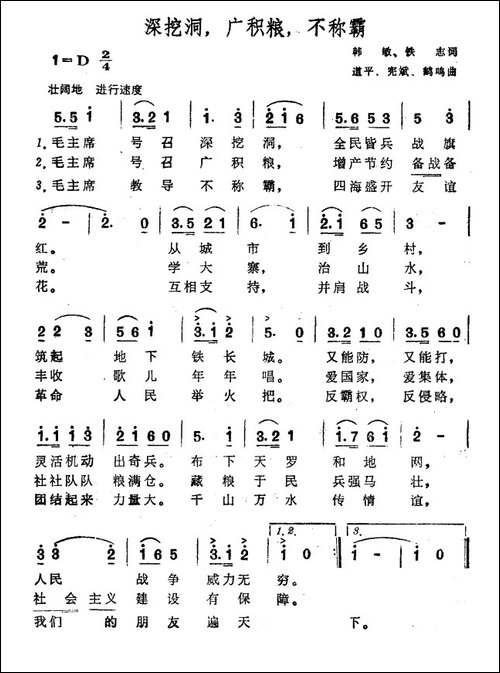 深挖洞，广积粮，不称霸
1=D 2/4
韩 敏、铁 志词
道平、宪斌、鹤鸣曲
壮阔地 进行速度
5.5 1 | 3.2 1 | 1. 3 | 2 1 6 | 5.6 5 3 | 5. 3 |
1.毛主席 号召 深挖 洞， 全民皆兵 战旗
2.毛主席 号召 广积 粮， 增产节约 备战备
3.毛主席 教导 不称 霸， 四海盛开 友谊
2 - | 2. 0 | 3.5 2 1 | 6. 1 | 2.1 6 5 | 3 - |
红。 从城 市 到乡 村，
荒。 学大 寨， 治山 水，
花。 互相支 持， 并肩战 斗，
2 2 3 | 5 6 1 | 3.1 2 | 5. 0 | 3.2 1 0 | 3.5 6 0 |
筑起 地下 铁长 城。 又能防， 又能打，
丰收 歌儿 年年 唱。 爱国家， 爱集体，
革命 人民 举火 把。 反霸权， 反侵略，
1.1 1 3 | 2 1 6 0 | 5. 1 | 3.2 1 | 1.7 6 1 | 5 - |
灵活机动 出奇兵。 布下 天罗 和地 网，
社社队队 粮满仓。 藏粮 于民 兵强马 壮，
团结起来 力量大。 千山 万水 传情 谊，
3 3 2 | 1 6 5 | 3.1 2 | 1 0 :| 1 - | 1 0 ‖
1.2.
3.
人民 战争 威力无 穷。
社会 主义 建设 有保 障。
我们 的 朋友 遍天 下。